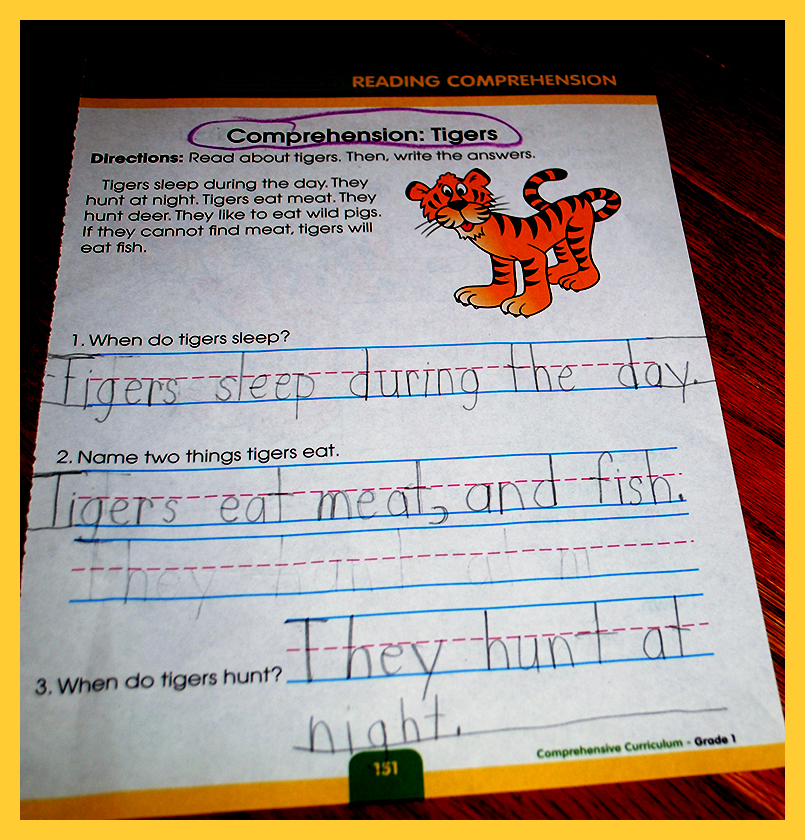 READING COMPREHENSION
Comprehension: Tigers
Directions: Read about tigers. Then, write the answers.
Tigers sleep during the day. They
hunt at night. Tigers eat meat. They
hunt deer. They like to eat wild pigs.
If they cannot find meat, tigers will
eat fish.
1. When do tigers sleep?
Tigers sleep during the day.
2. Name two things tigers eat.
Tigers eat meat, and fish.
They hunt at n
3. When do tigers hunt? They hunt at
night.
Comprehensive Curriculum - Grade 1
151